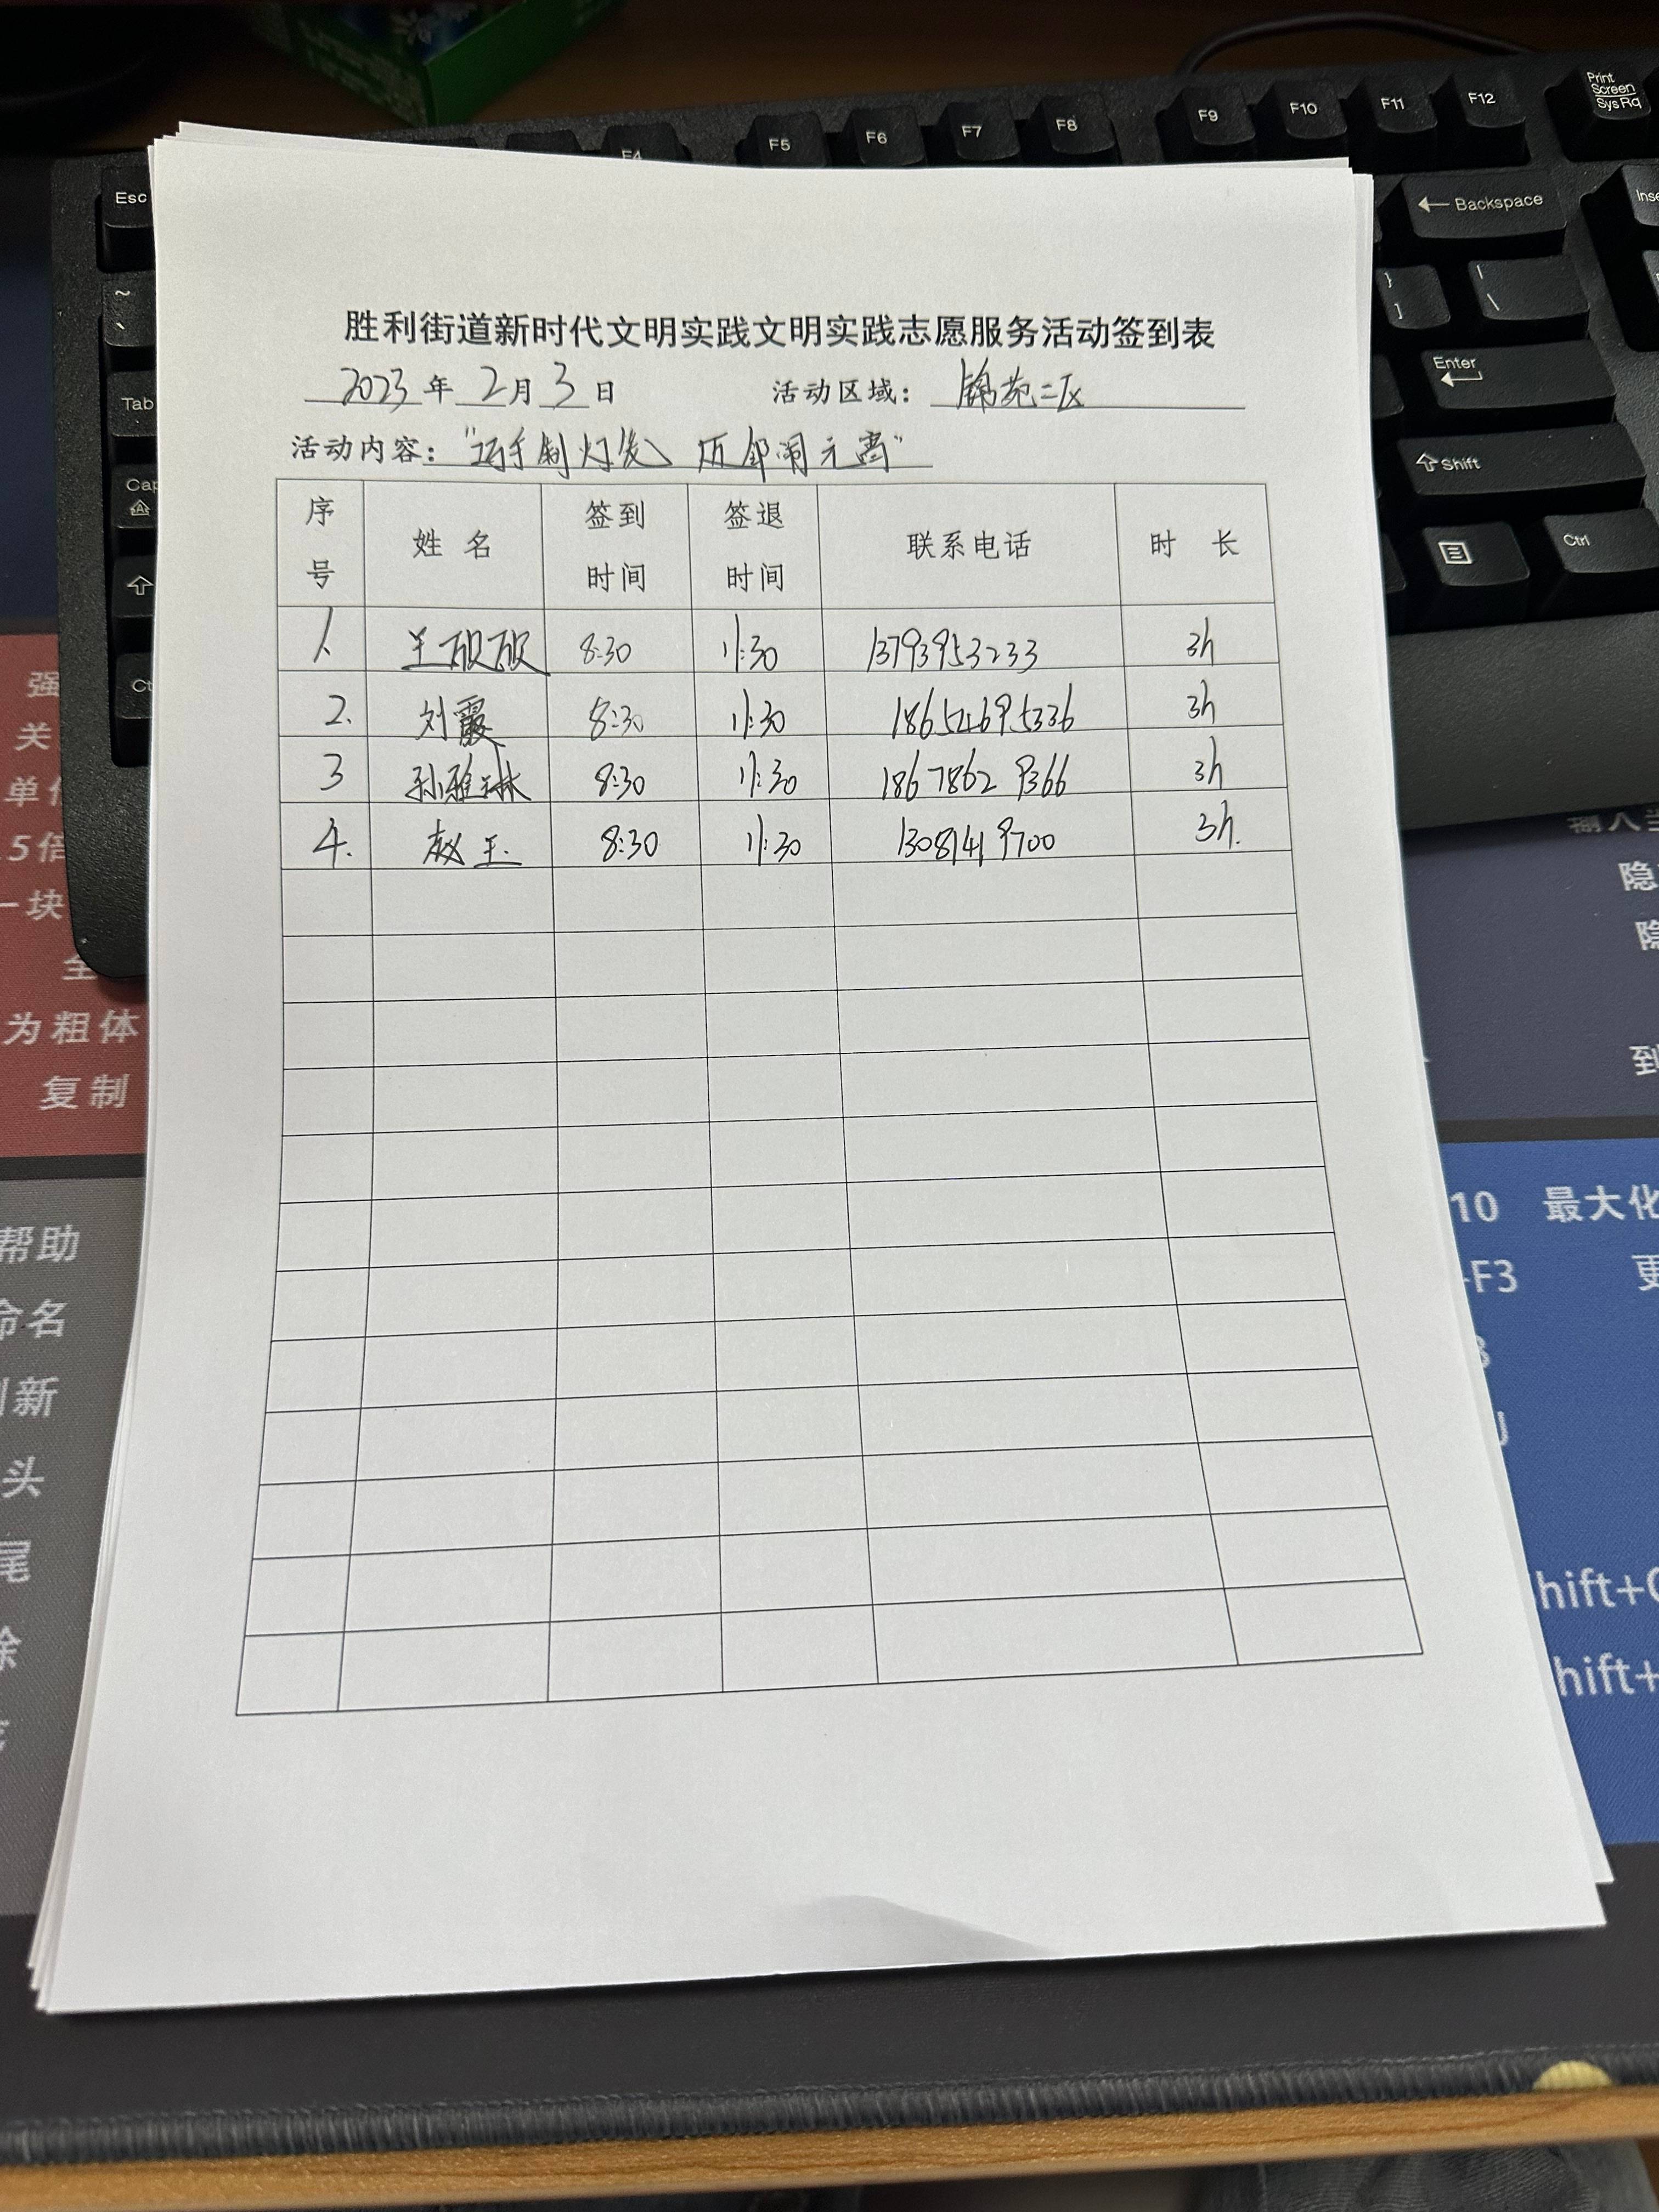 Print
Screen
Sys Rq
F4
F5
F6
F7
F8
F9
F10
F11
F12
Esc
Backspace
Inse
~
}
]
|
\
Tab
Enter
Cap
Shift
Ctrl
胜利街道新时代文明实践文明实践志愿服务活动签到表
2023 年 2 月 3 日 活动区域: 锦苑二区
活动内容: 闹元宵"
序号 姓 名 签到时间 签退时间 联系电话 时 长
1. 8:30 11:30 13793953233 3h
2. 刘霞 8:30 11:30 18654695336 3h
3 孙雅琳 8:30 11:30 18678629366 3h
4. 赵玉 8:30 11:30 13081419700 3h.
强
关
单
5倍
一块
全
为粗体
复制
帮助
命名
刷新
头
尾
输入
隐
隐
到
10 最大化
F3 更
hift+
hift+